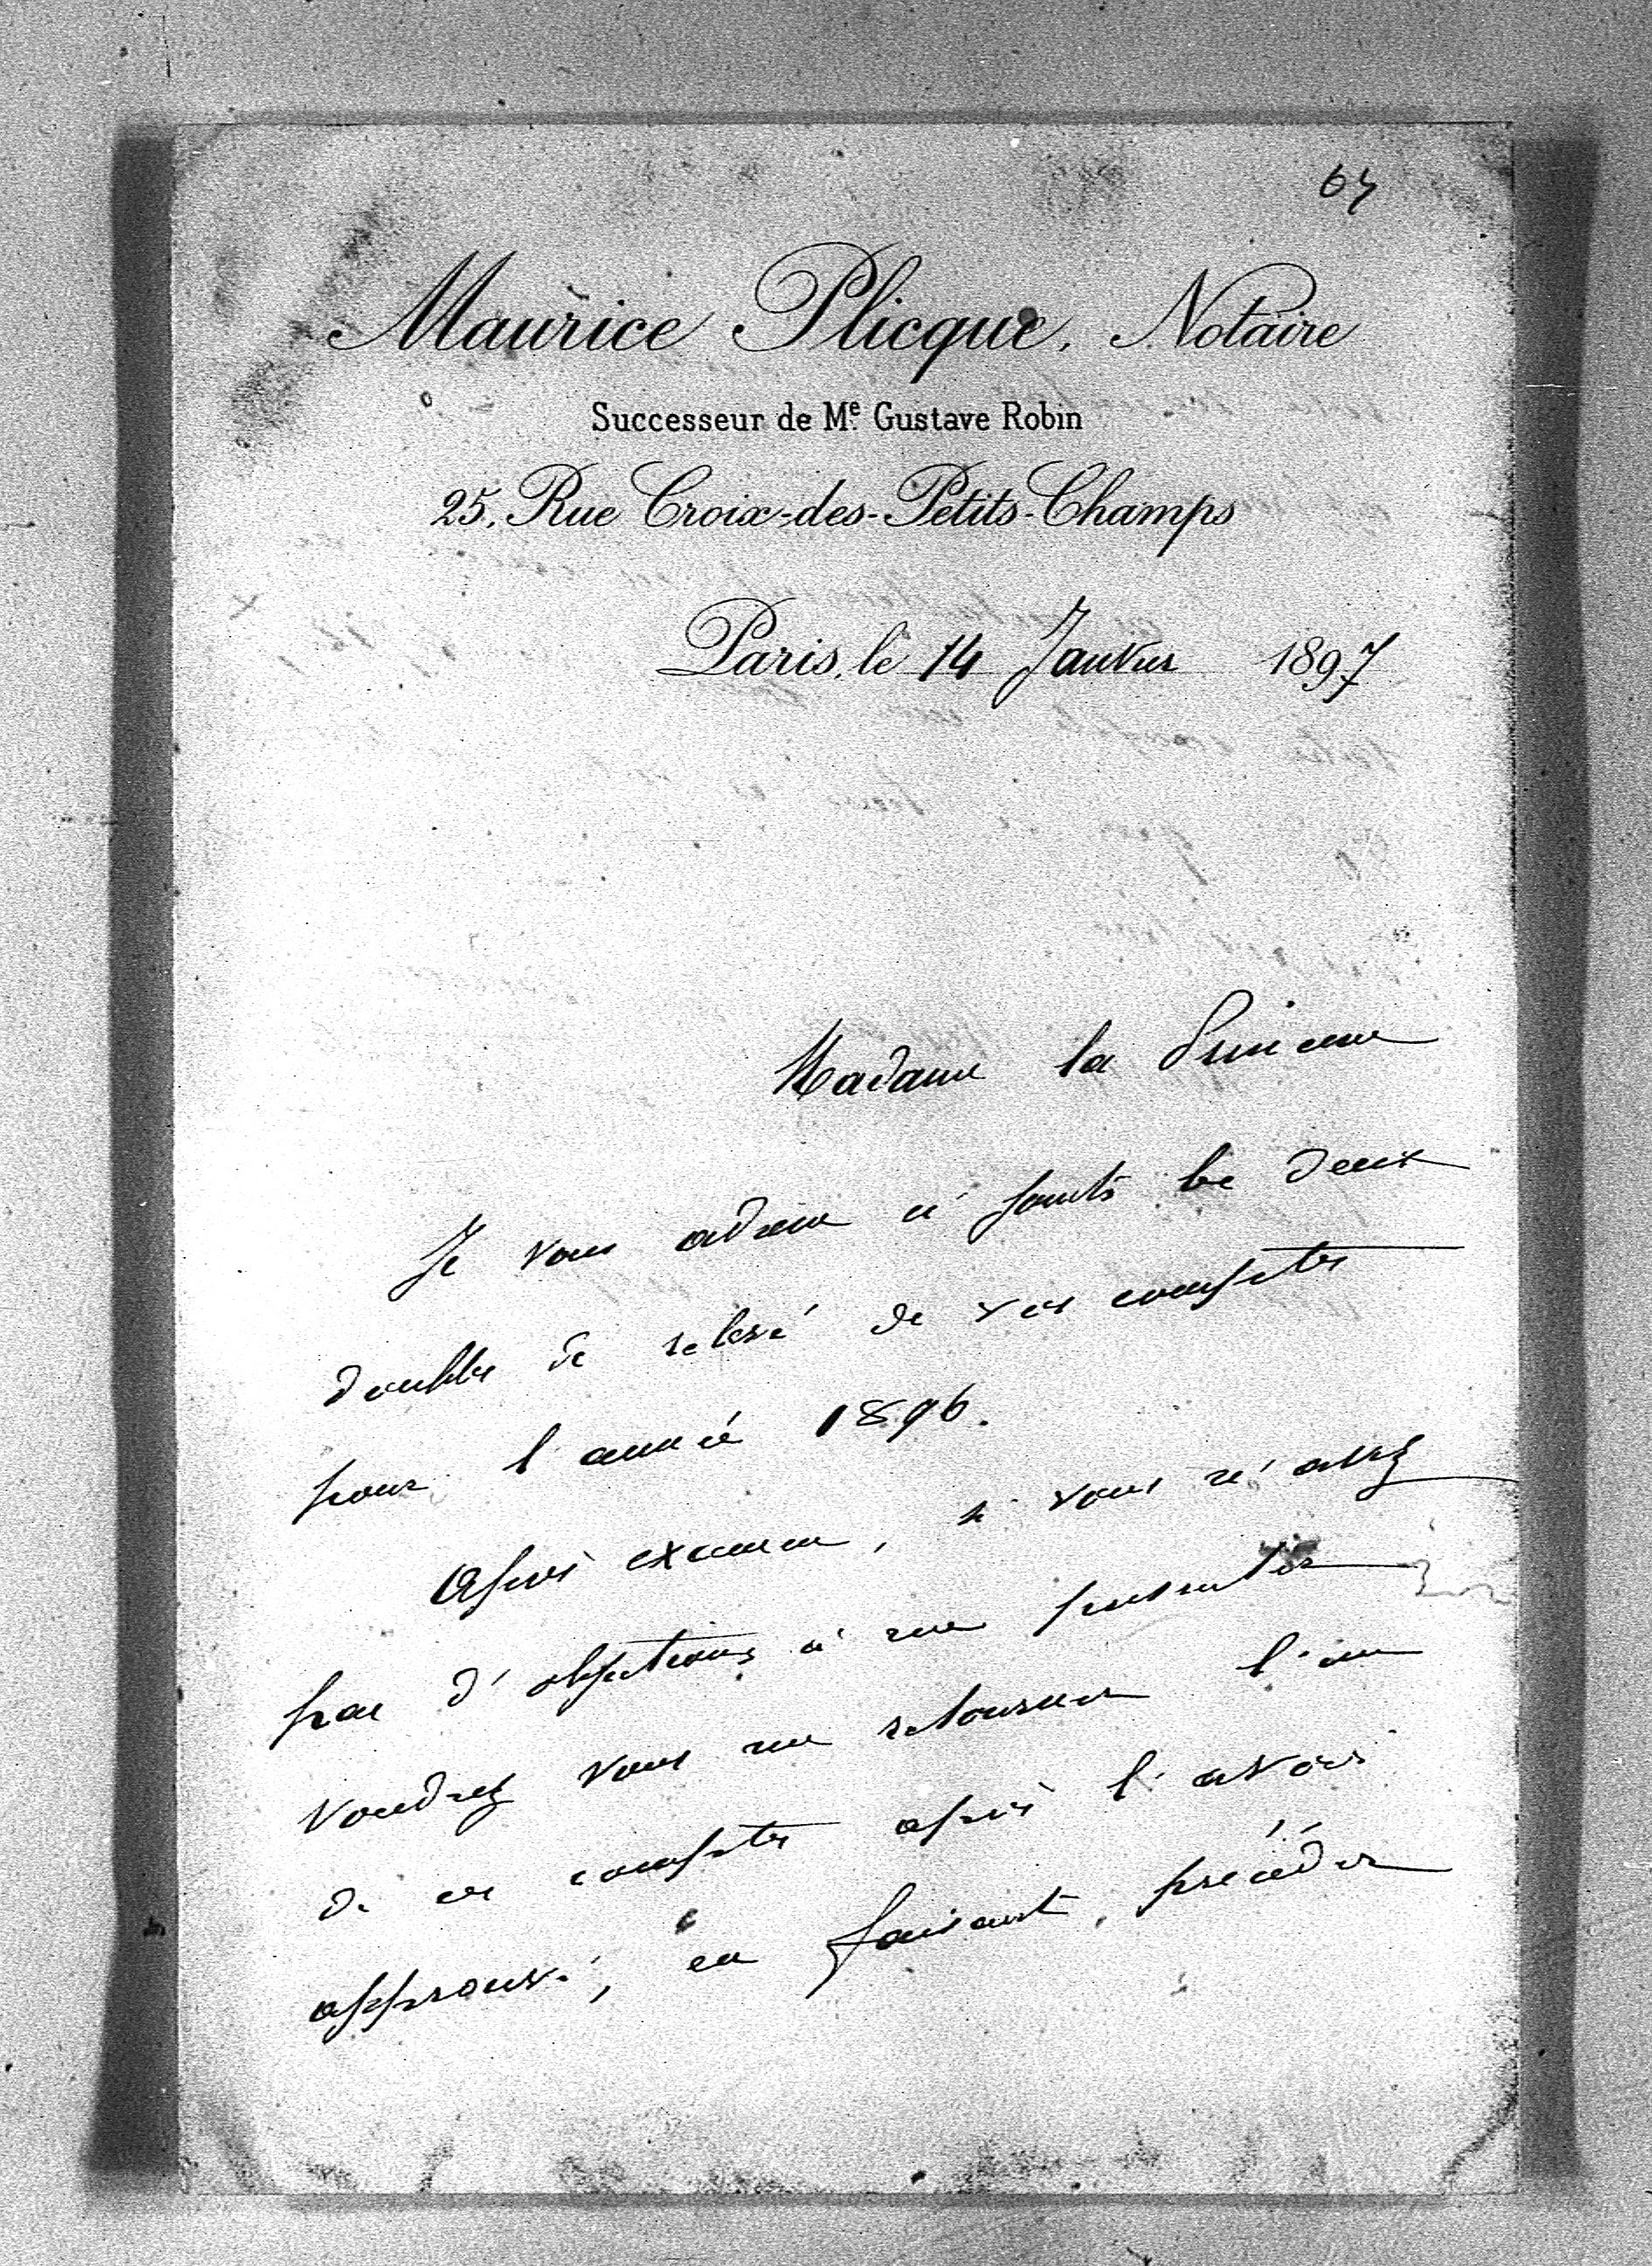 67
Maurice Plicque, Notaire
Successeur de Me. Gustave Robin
25, Rue Croix-des-Petits-Champs
Paris, le 14 Janvier 1897
Madame la Princesse
Je vous adresse ci joints les deux
doubles de relevé de vos comptes
pour l'année 1896.
Après examen, si vous n'avez
pas d'objections à me présenter
voudrez vous me retourner l'un
de ces comptes après l'avoir
approuvé, en faisant, précéder